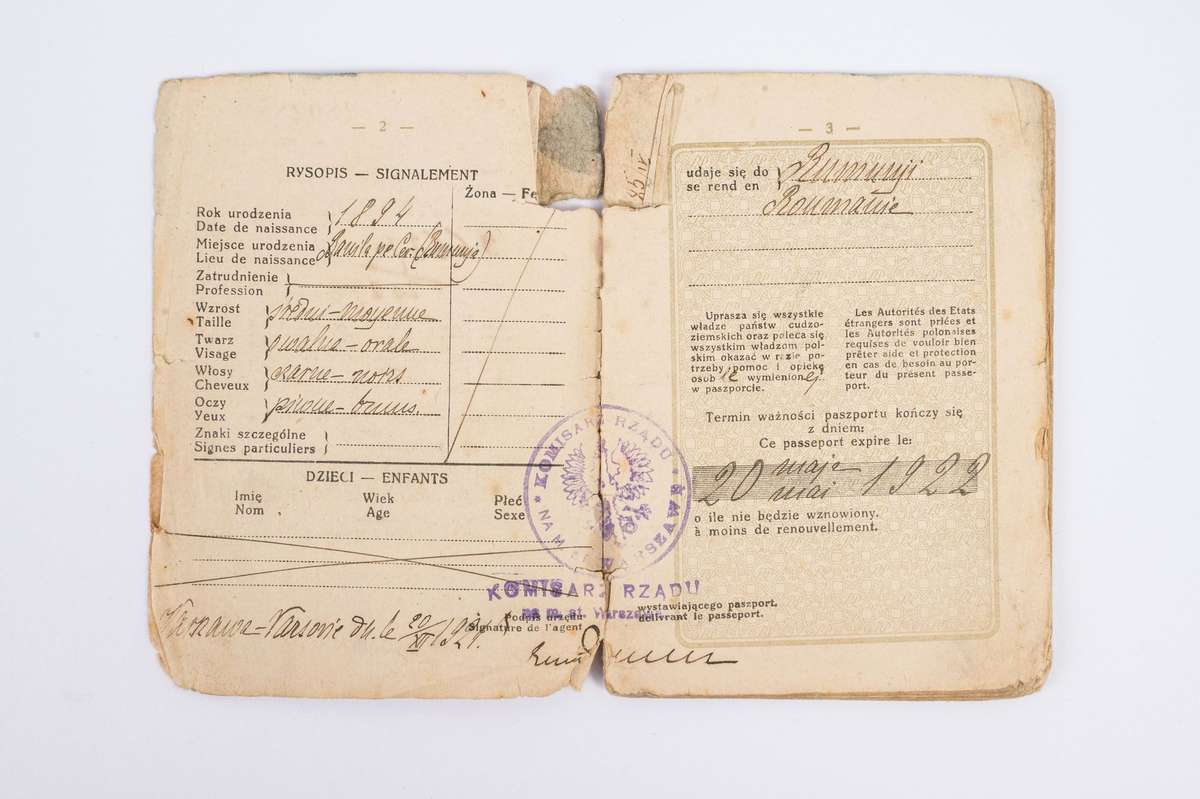 — 2 —
RYSOPIS — SIGNALEMENT
Żona — Fe
Rok urodzenia
Date de naissance
1894
Miejsce urodzenia
Lieu de naissance
(Rumunja)
Zatrudnienie
Profession
Wzrost
Taille
średni - moyenne
Twarz
Visage
owalna - ovale
Włosy
Cheveux
czarne - noirs
Oczy
Yeux
piwne - bruns.
Znaki szczególne
Signes particuliers
DZIECI — ENFANTS
Imię Wiek Płeć
Nom Age Sexe
KOMISARZ RZĄDU
NA M. ST. WARSZAWĘ
KOMISARZ RZĄDU
na m. st. Warszawę
Warszawa - Varsovie du le 20/XII 1921.
Podpis urzędn
Signature de l'agent
— 3 —
udaje się do
se rend en
Rumunji
Roumanie
Uprasza się wszystkie
władze państw cudzo-
ziemskich oraz poleca się
wszystkim władzom pol-
skim okazać w razie po-
trzeby pomoc i opiekę
osobie wymienionej
w paszporcie.
Les Autorités des Etats
étrangers sont priées et
les Autorités polonaises
requises de vouloir bien
prêter aide et protection
en cas de besoin au por-
teur du présent passe-
port.
Termin ważności paszportu kończy się
z dniem:
Ce passeport expire le:
20 maja 1922
mai
o ile nie będzie wznowiony.
à moins de renouvellement.
wystawiającego paszport.
délivrant le passeport.